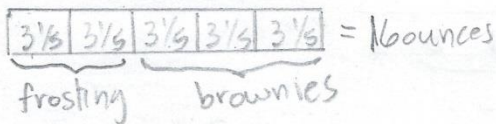 3 1/5 3 1/5 3 1/5 3 1/5 3 1/5 = 16 ounces
frosting brownies